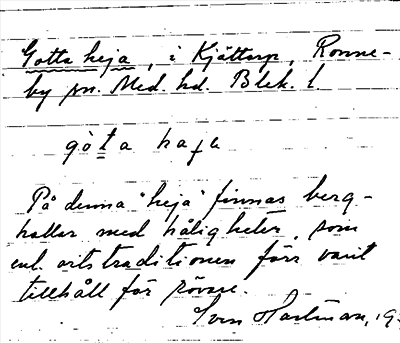 Gotta heja, i Kjättorp, Ronne-
by sn. Med. hd. Blek. l
gòta haʒa
På denna "heja" finnas berg-
hallar med håligheter, som
enl. ortstraditionen förr varit
tillhåll för rövare.
Sven Hartman, 19